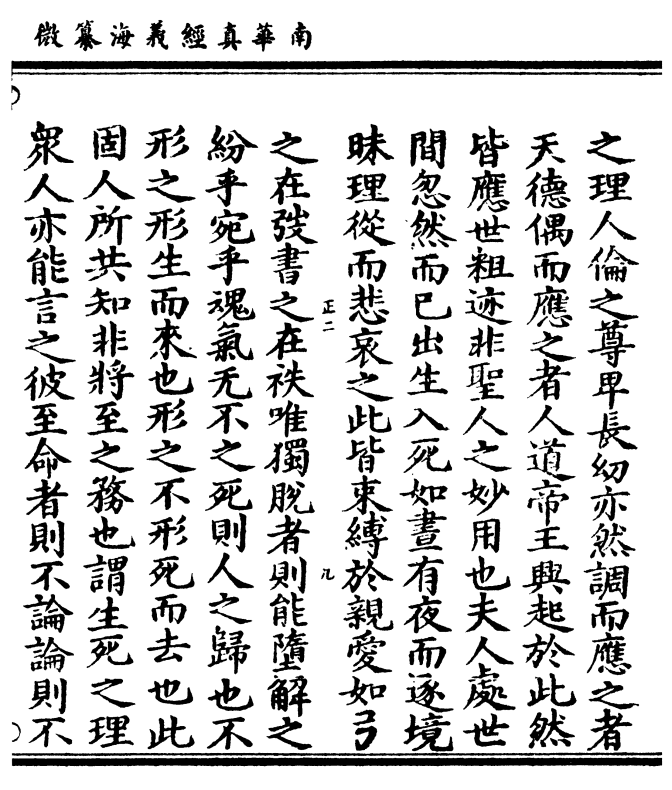 南華真經義海纂微
之理人倫之尊卑長幼亦然調而應之者
天德偶而應之者人道帝王興起於此然
皆應世粗迹非聖人之妙用也夫人處世
間忽然而已出生入死如晝有夜而逐境
昧理從而悲哀之此皆束縛於親愛如弓
正二
九
之在弢書之在袟唯獨脫者則能墮解之
紛乎宛乎魂氣无不之死則人之歸也不
形之形生而來也形之不形死而去也此
固人所共知非將至之務也謂生死之理
衆人亦能言之彼至命者則不論論則不